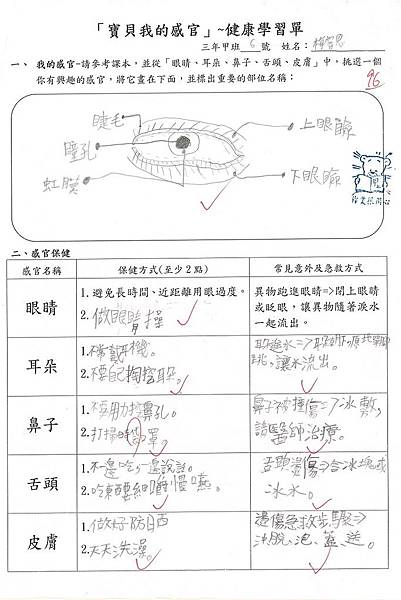 「寶貝我的感官」~健康學習單
三年甲班 6 號 姓名：
96
一、 我的感官-請參考課本，並從「眼睛、耳朵、鼻子、舌頭、皮膚」中，挑選一個
你有興趣的感官，將它畫在下面，並標出重要的部位名稱：
睫毛
上眼瞼
瞳孔
虹膜
下眼瞼
二、感官保健
感官名稱 保健方式(至少2點) 常見意外及急救方式
眼睛
1.避免長時間、近距離用眼過度。
2.做眼睛操
異物跑進眼睛=>閉上眼睛
或眨眼，讓異物隨著淚水
一起流出。
耳朵
1.不常戴耳機。
2.不要自己掏挖耳朵。
跳，讓水流出。
鼻子
1.不要用力挖鼻孔。
2.打掃時 罩。
鼻子被撞傷=>冰敷，
請醫師治療。
舌頭
1.不邊吃，邊說話。
2.吃東西要細嚼慢嚥。
舌頭燙傷=>含冰塊或
冰水。
皮膚
1.做好防晒
2.天天洗澡。
燙傷急救步驟=>
沖、脫、泡、蓋、送。